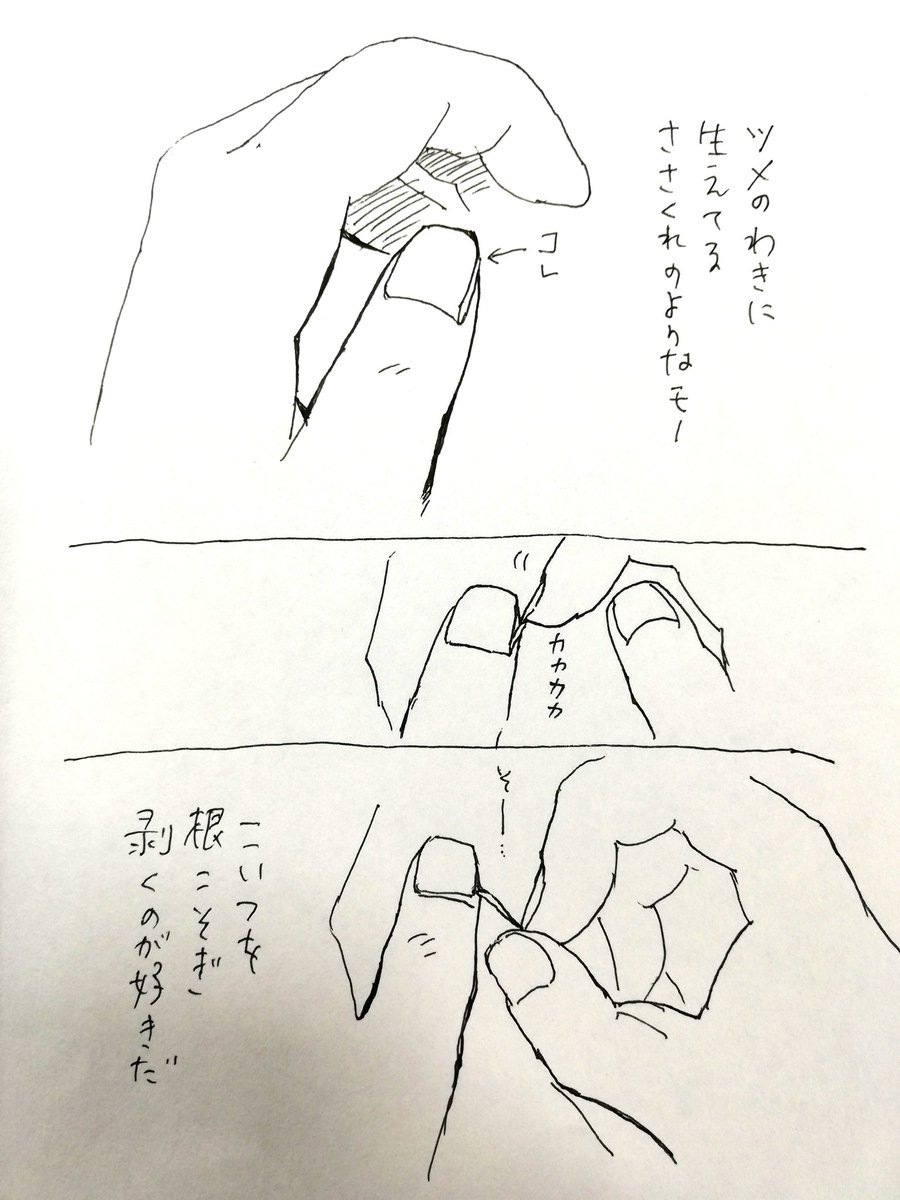 ツメのわきに
生えてる
ささくれのようなモノ
コレ
カカカカ
そー…
こいつを
根こそぎ
剥くのが好きだ